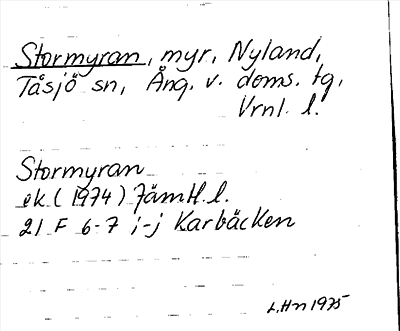 Stormyran, myr, Nyland,
Tåsjö sn, Ång. v. doms. tg,
Vrnl. l.
Stormyran
ek. (1974) Jämtl. l.
21 F 6-7 i-j Karbäcken
L.Hn 1975